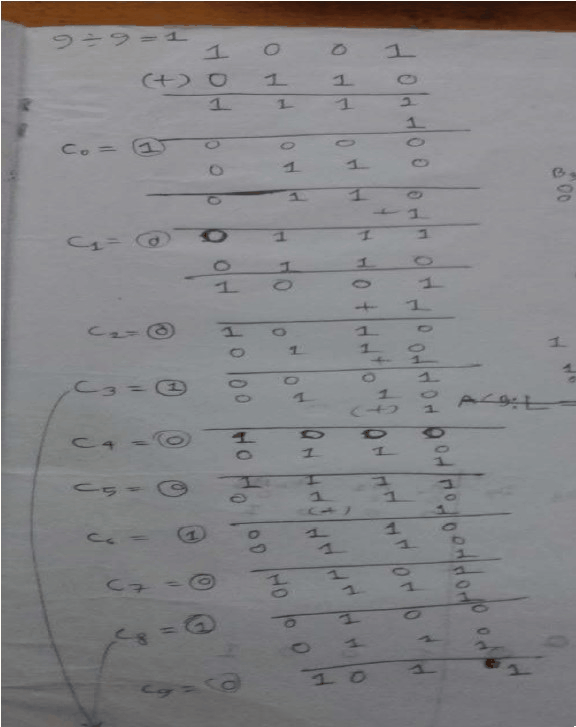 9÷9=1
1 0 0 1
(+) 0 1 1 0
1 1 1 1
1
C₀ = ① 0 0 0 0
0 1 1 0
0 1 1 0
+ 1
C₁ = ⓪ 0 1 1 1
0 1 1 0
1 0 0 1
+ 1
C₂ = ⓪ 1 0 1 0
0 1 1 0
+ 1
C₃ = ① 0 0 0 1
0 1 1 0
(+) 1
C₄ = ⓪ 1 0 0 0
0 1 1 0
1
C₅ = ⓪ 1 1 1 1
0 1 1 0
(+) 1
C₆ = ① 0 1 1 0
0 1 1 0
1
C₇ = ⓪ 1 1 0 1
0 1 1 0
1
C₈ = ① 0 1 0 0
0 1 1 0
1
C₉ = ⓪ 1 0 1 1
B
0
0
1
1
0